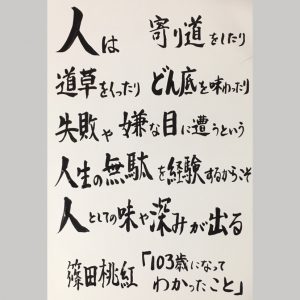 人は 寄り道をしたり
道草をくったり どん底を味わったり
失敗や嫌な目に遭うという
人生の無駄を経験するからこそ
人としての味や深みが出る
篠田桃紅「103歳になって
わかったこと」